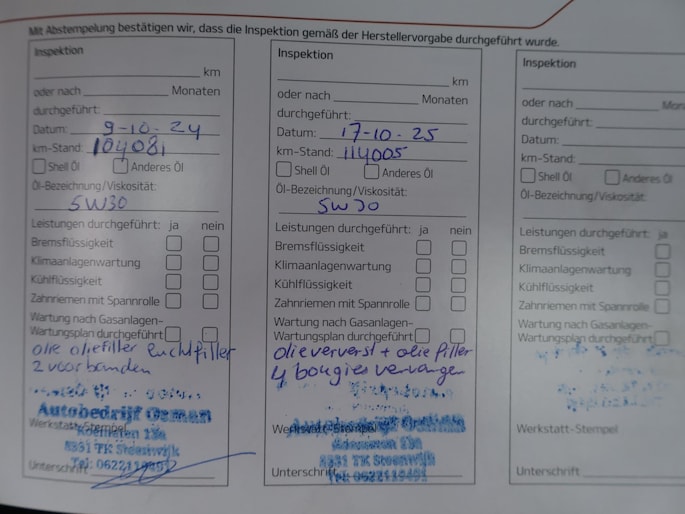 Mit Abstempelung bestätigen wir, dass die Inspektion gemäß der Herstellervorgabe durchgeführt wurde.
Inspektion
km
oder nach Monaten
durchgeführt:
Datum: 9-10-24
km-Stand: 104081
Shell Öl Anderes Öl
Öl-Bezeichnung/Viskosität:
5W30
Leistungen durchgeführt: ja nein
Bremsflüssigkeit
Klimaanlagenwartung
Kühlflüssigkeit
Zahnriemen mit Spannrolle
Wartung nach Gasanlagen-
Wartungsplan durchgeführt
olie oliefilter luchtfilter
2 voorbanden
Autobedrijf Osman
Werkstatt-Stempel
13a
8331 TK Steenwijk
Tel: 0622119491
Unterschrift
Inspektion
km
oder nach Monaten
durchgeführt:
Datum: 17-10-25
km-Stand: 114005
Shell Öl Anderes Öl
Öl-Bezeichnung/Viskosität:
5W30
Leistungen durchgeführt: ja nein
Bremsflüssigkeit
Klimaanlagenwartung
Kühlflüssigkeit
Zahnriemen mit Spannrolle
Wartung nach Gasanlagen-
Wartungsplan durchgeführt
olie ververst + olie filter
4 bougies vervangen
Autobedrijf Osman
Werkstatt-Stempel
13a
8331 TK Steenwijk
Tel: 0622119491
Unterschrift
Inspektion
oder nach Mon
durchgeführt:
Datum:
km-Stand:
Shell Öl Anderes Öl
Öl-Bezeichnung/Viskosität:
Leistungen durchgeführt: ja
Bremsflüssigkeit
Klimaanlagenwartung
Kühlflüssigkeit
Zahnriemen mit Spannrolle
Wartung nach Gasanlagen-
Wartungsplan durchgeführt
Werkstatt-Stempel
Unterschrift